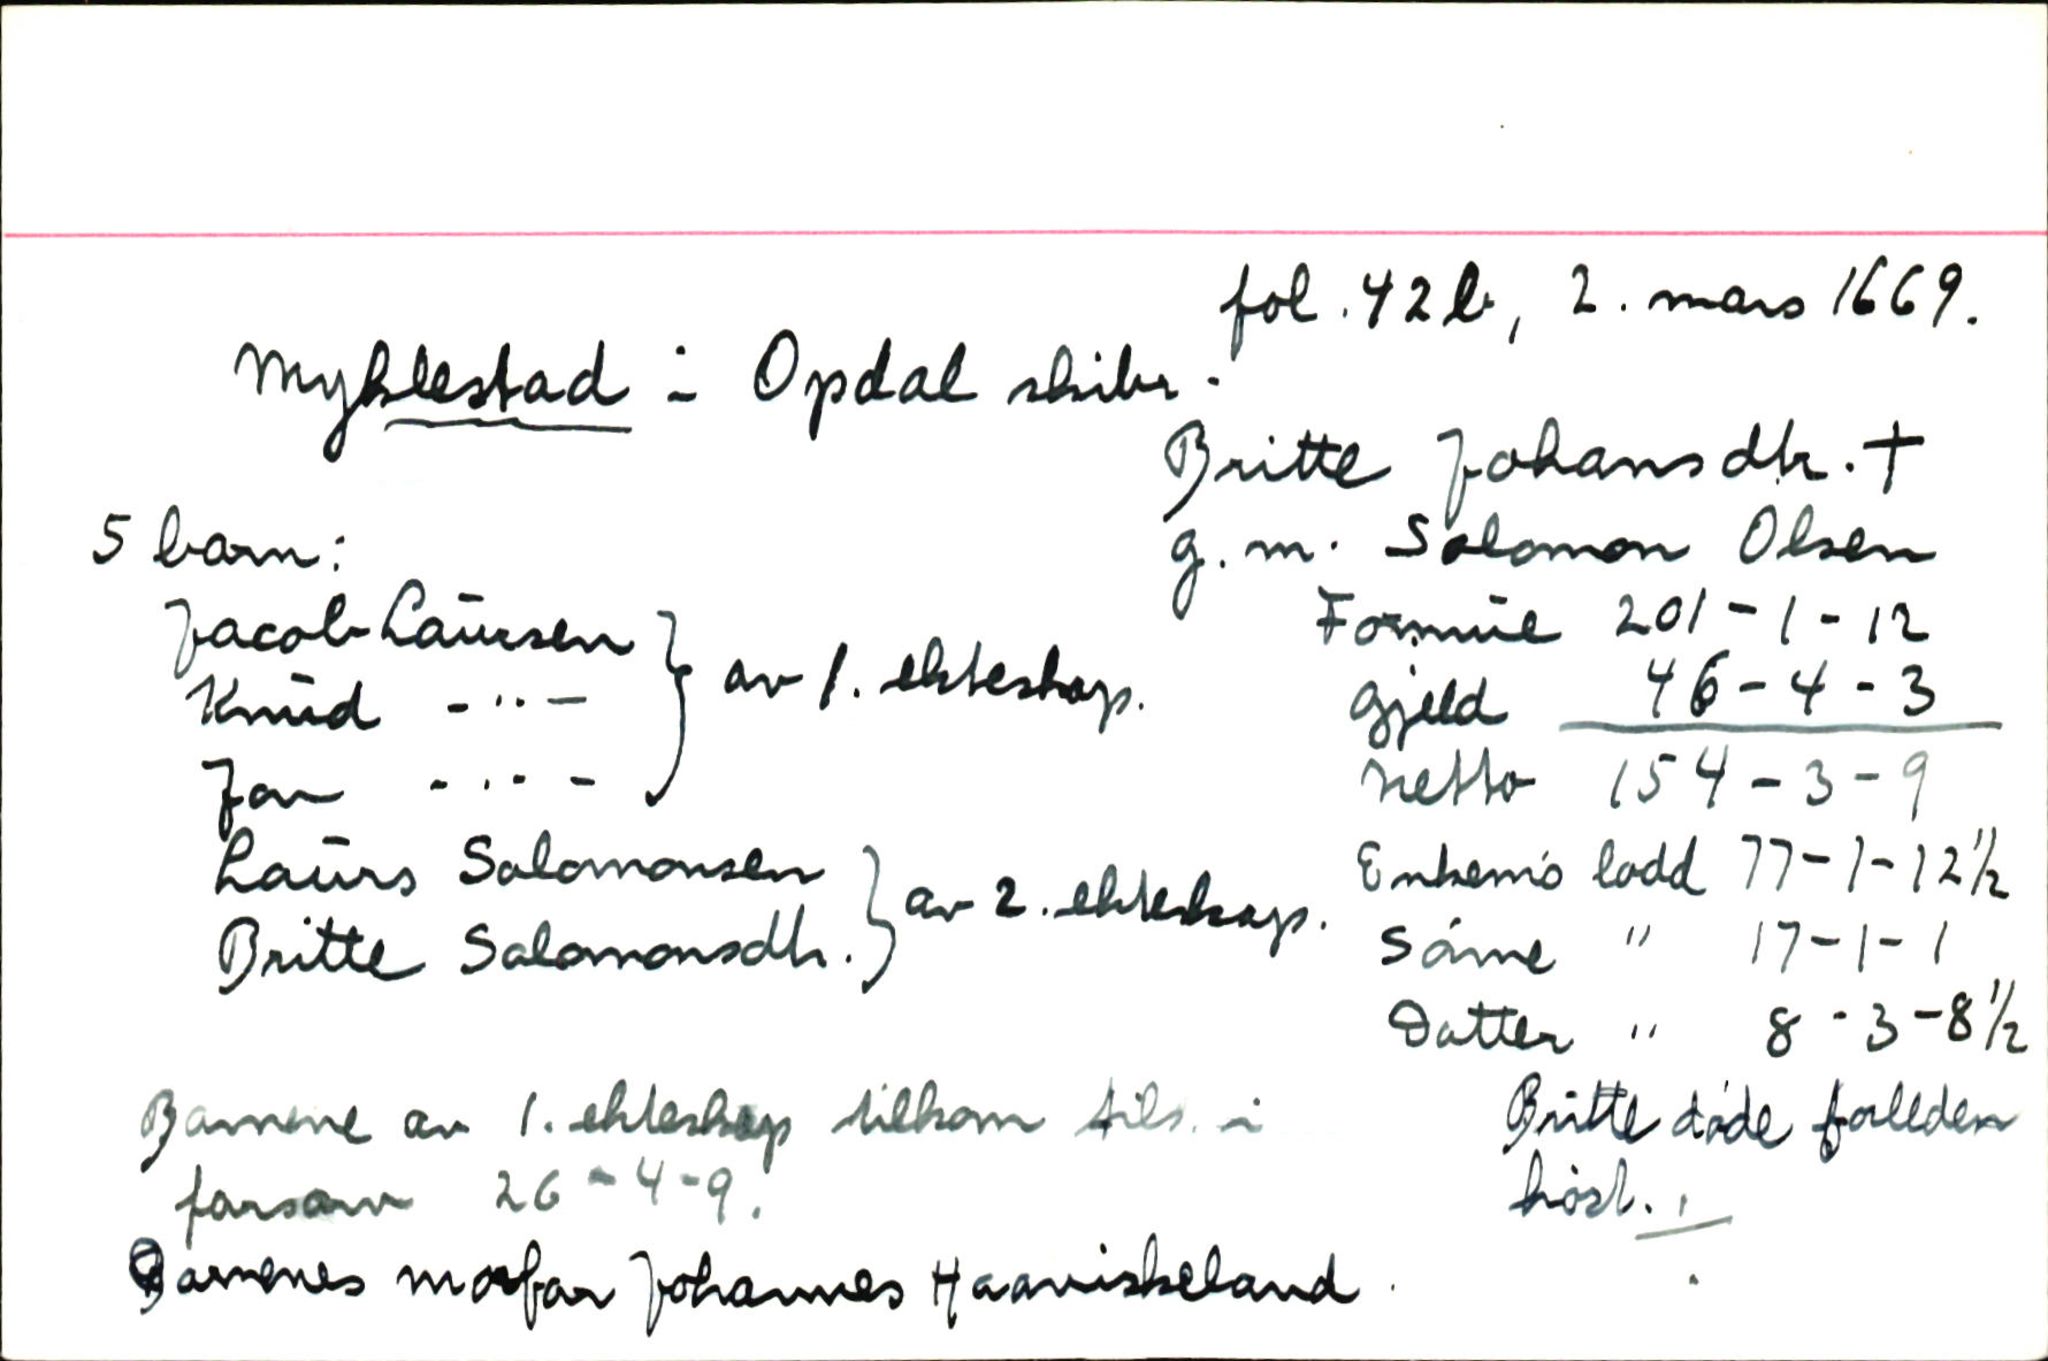 fol. 42 b, 2. mars 1669.
Myklestad i Opdal skibr.
Britte Johansdtr. †
g. m. Salomon Olsen
5 barn:
Jacob Laursen
Knud -"-
Jon -"-
} av 1. ekteskap.
Laurs Salomonsen
Britte Salomonsdtr.
} av 2. ekteskap.
Formue 201-1-12
Gjeld 46-4-3
Netto 154-3-9
Enkem's lodd 77-1-12 1/2
Sönne " 17-1-1
Datter " 8-3-8 1/2
Britte döde forleden
höst.
Barnene av 1. ekteskap tilkom tils. i
farsarv 26-4-9.
Barnenes morfar Johannes Haaviskeland.